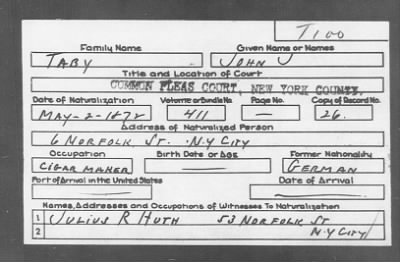 T100
Family Name Given Name or Names
TABY JOHN J
Title and Location of Court
COMMON PLEAS COURT, NEW YORK COUNTY.
Date of Naturalization Volume or Bundle No. Page No. Copy of Record No.
MAY-2-1872 411 — 26.
Address of Naturalized Person
6 NORFOLK ST. N.Y CITY
Occupation Birth Date or Age Former Nationality
CIGAR MAKER — GERMAN
Port of Arrival in the United States Date of Arrival
— —
Names, Addresses and Occupations of Witnesses To Naturalization
1 JULIUS R HUTH 53 NORFOLK ST
2 N.Y CITY